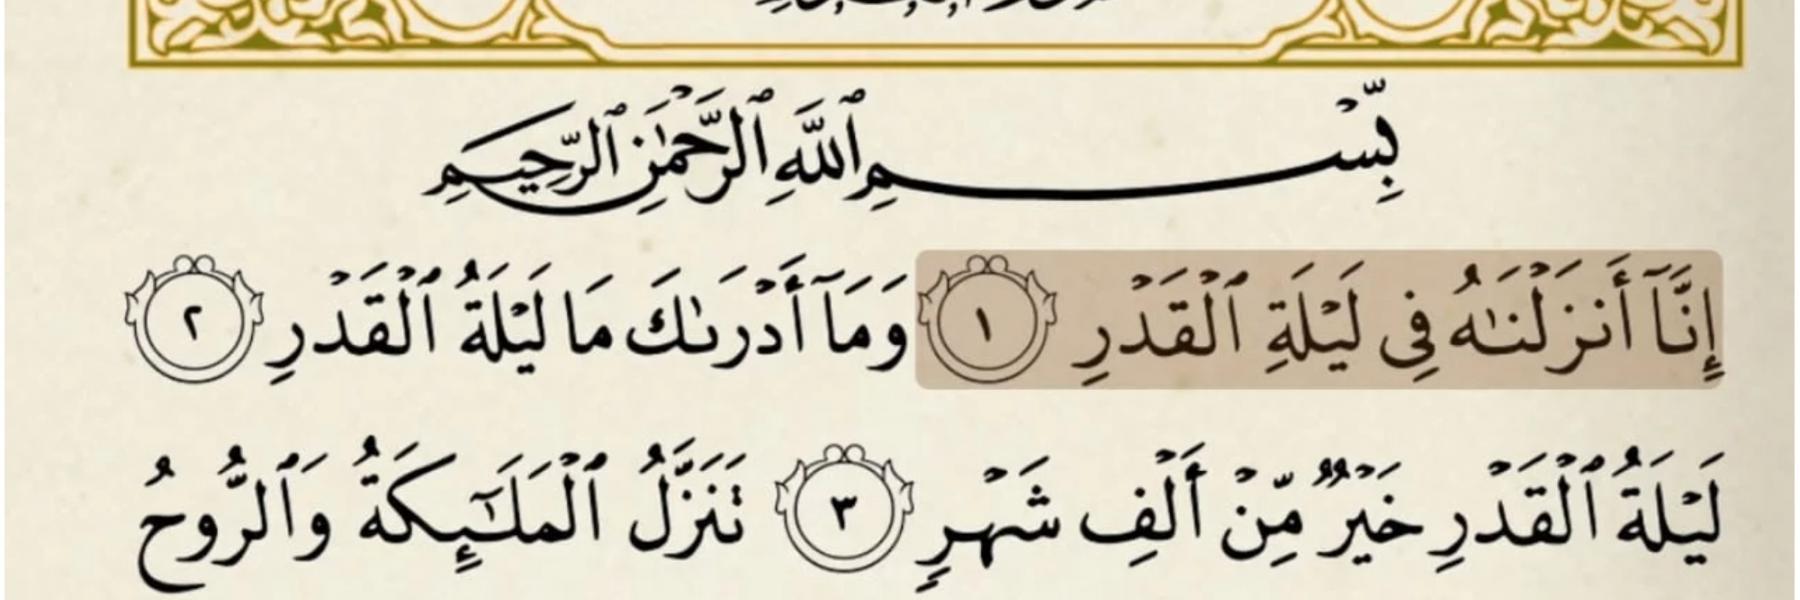 بِّسْمِ ٱللَّهِ ٱلرَّحْمَٰنِ ٱلرَّحِيمِ
إِنَّآ أَنزَلْنَٰهُ فِى لَيْلَةِ ٱلْقَدْرِ ١ وَمَآ أَدْرَىٰكَ مَا لَيْلَةُ ٱلْقَدْرِ ٢
لَيْلَةُ ٱلْقَدْرِ خَيْرٌ مِّنْ أَلْفِ شَهْرٍ ٣ تَنَزَّلُ ٱلْمَلَٰٓئِكَةُ وَٱلرُّوحُ